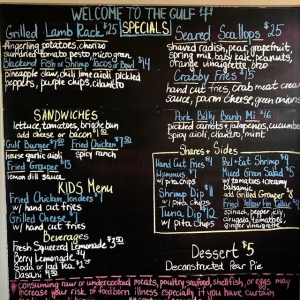 WELCOME TO THE GULF
SPECIALS
Grilled Lamb Rack $25
fingerling potatoes, chorizo
sundried tomato pesto micro green
Blackend Fish or Shrimp Tacos or Bowl $14
pineapple slaw, chili lime aioli, pickled
peppers, purple chips, cilantro
Seared Scallops $25
shaved radish, pear, grapefruit,
spring mix, baby kale, peanuts,
orange vinaigrette
Crabby Fries $15
hand cut fries, crab meat cream
sauce, parm cheese, green onions
Pork Belly Banh Mi $16
pickled carrots + jalapenos, cucumber
aioli, cilantro, mint
SANDWICHES
lettuce, tomatoes, brioche bun
add cheese or bacon $1
Gulf Burger
house garlic aioli
Fried Chicken
spicy ranch
Fried Grouper
lemon dill sauce
KIDS Menu
Fried Chicken Tenders $7
w/ hand cut fries
Grilled Cheese
w/ hand cut fries
Beverages
Fresh Squeezed Lemonade $3.50
Berry Lemonade $4
Soda or Iced Tea
Dasani
Shares + Sides
Hand Cut Fries $4
Hummus $7
w/ pita chips
Shrimp Dip $11
w/ pita chips
Tuna Dip $12
w/ pita chips
Peel + Eat Shrimp
Mixed Greens $7
w/ tomatoes + creamy
balsamic
add Grilled Grouper
spinach, pepper jelly,
arugula, tomatoes,
ginger vinaigrette
Dessert $5
Deconstructed Pear Pie
* consuming raw or undercooked meats, poultry, seafood, shellfish, or eggs may
increase your risk of foodborn illness especially if you have certain